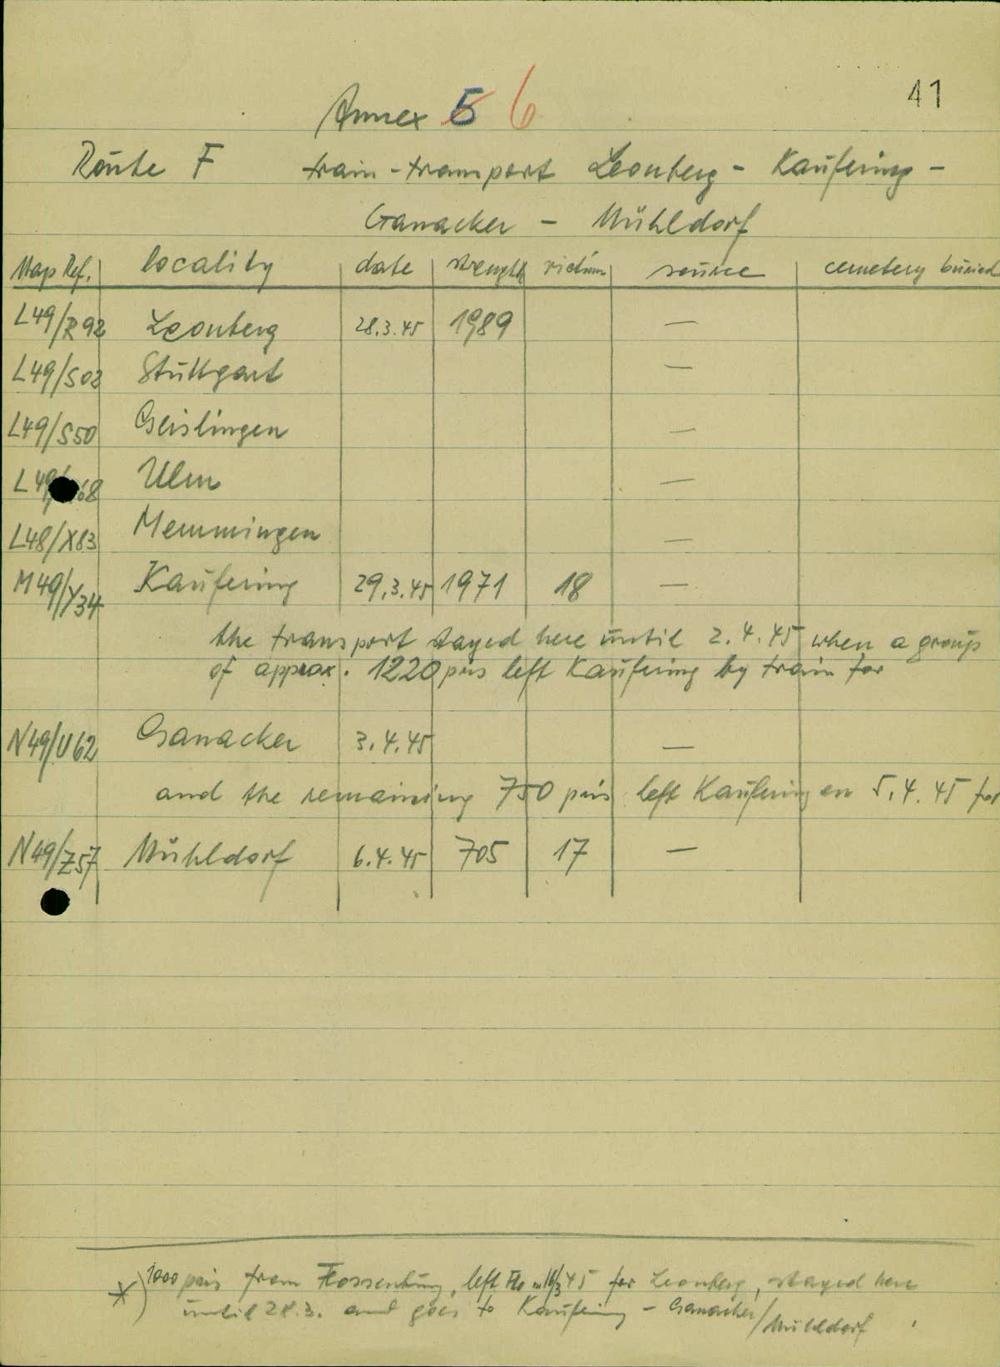 41
Annex 5 6
Route F train-transport Leonberg - Kaufering -
Ganacker - Mühldorf
Map Ref. locality date strength victims source cemetery buried
L49/R92 Leonberg 28.3.45 1989 —
L49/S02 Stuttgart —
L49/S50 Geislingen —
L49/ 68 Ulm —
L48/X83 Memmingen —
M49/Y34 Kaufering 29.3.45 1971 18 —
the transport stayed here until 2.4.45 when a group
of approx. 1220 pris left Kaufering by train for
N49/U62 Ganacker 3.4.45 —
and the remaining 750 pris left Kaufering on 5.4.45 for
N49/Z57 Mühldorf 6.4.45 705 17 —
*) 1000 pris from Flossenbürg, left Flo 45 for Leonberg, stayed here
until 28.3. and goes to Kaufering - Ganacker/Mühldorf